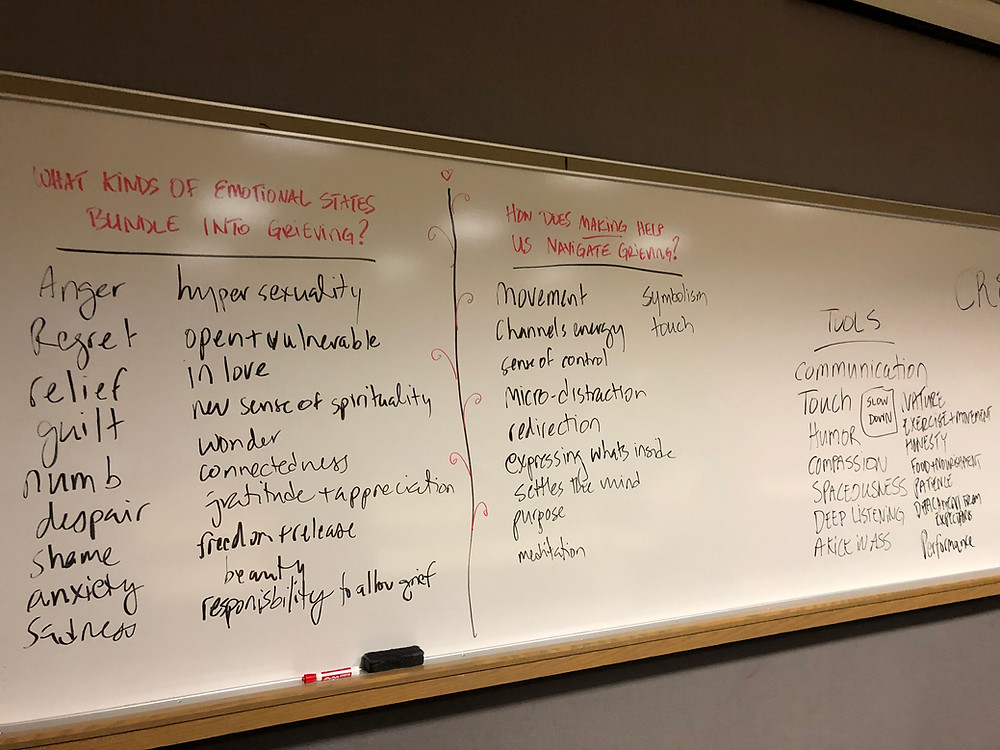 WHAT KINDS OF EMOTIONAL STATES
BUNDLE INTO GRIEVING?
Anger
Regret
relief
guilt
numb
despair
shame
anxiety
sadness
hyper sexuality
open + vulnerable
in love
new sense of spirituality
wonder
connectedness
gratitude + appreciation
freedom + release
beauty
responisbility to allow grief
HOW DOES MAKING HELP
US NAVIGATE GRIEVING?
Movement
Channels energy
sense of control
Micro-distraction
redirection
expressing whats inside
settles the mind
purpose
meditation
symbolism
touch
TOOLS
Communication
TOUCH
HUMOR
COMPASSION
SPACEOUSNESS
DEEP LISTENING
A KICK IN ASS
SLOW
DOWN
NATURE
EXERCISE + MOVEMENT
HONESTY
FOOD + NOURISHMENT
PATIENCE
FROM
Performance